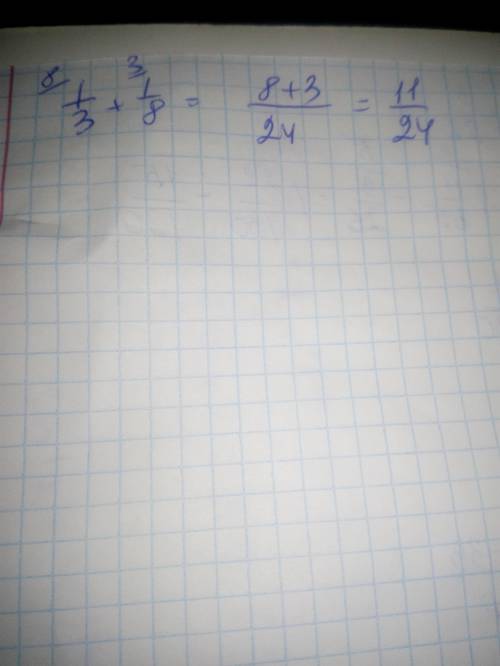 8/ 1/3 + 3/ 1/8 = (8+3)/24 = 11/24